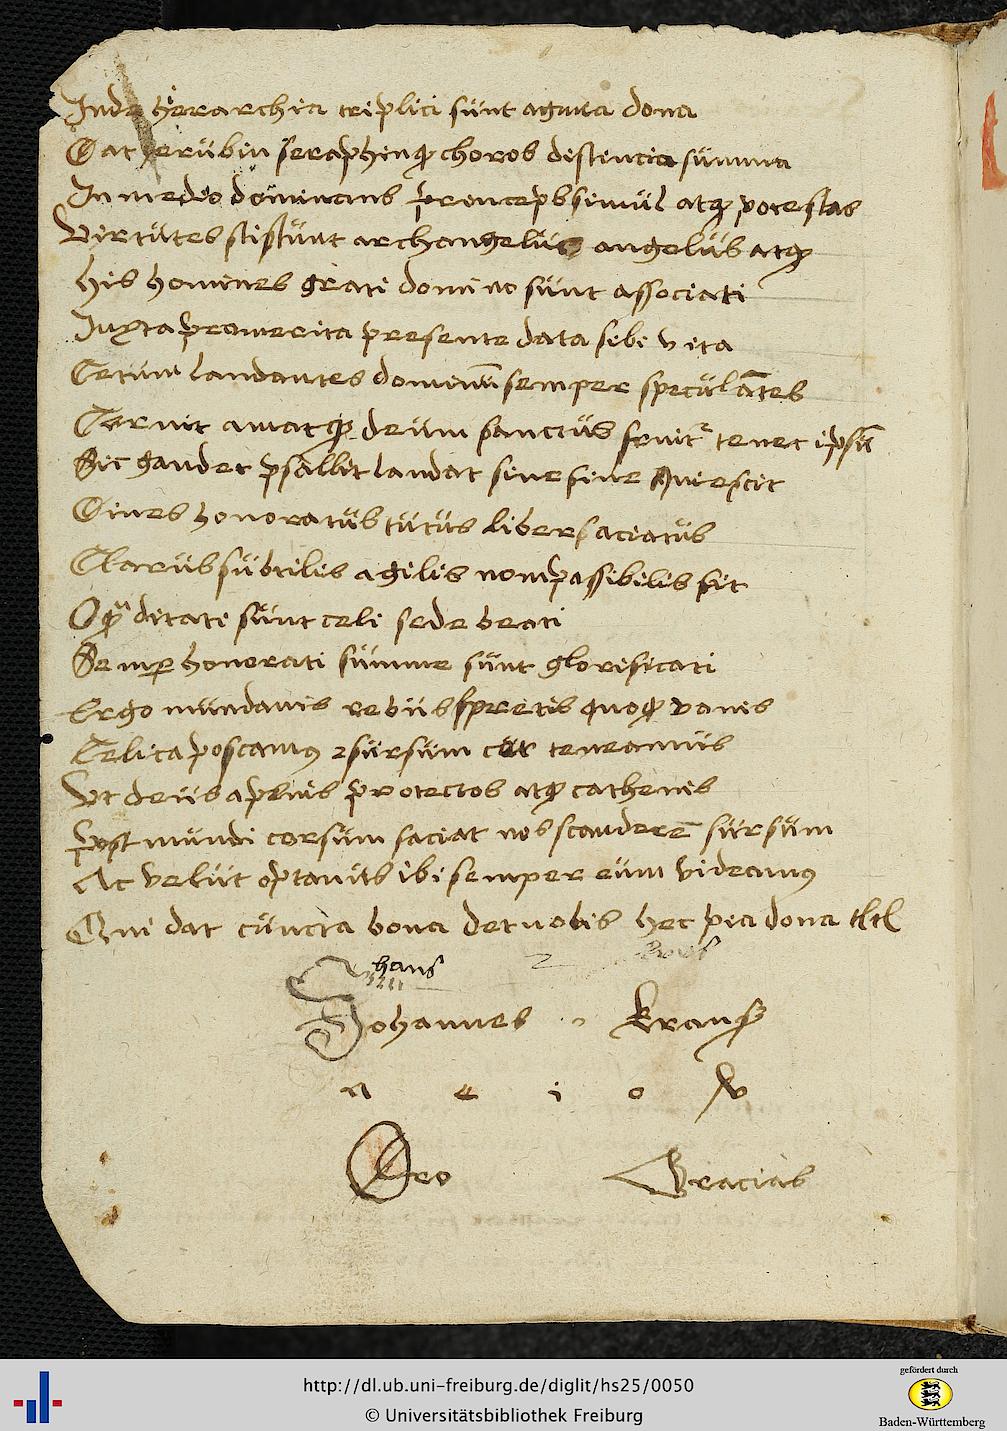 Inde hierarchia triplici sunt agmina dona
Dat cherubin seraphinqȝ choros distincia summa
In medio dominans princeps simul atqȝ potestas
Virtutes sistunt archangelus angelus atqȝ
His homines grati domino sunt associati
Iuxta promerita presente data sibi vita
Cetum laudantes dominū semper speculātes
Cernit amatqȝ deum sanctus fruitr tenet ipsū
Sic gaudet psallit laudat sine fine quiescit
Dives honoratus tutus liber saciatus
Clarus subtilis agilis nonpassibilis sit
O qā ditati sunt celi sede beati
Semp honorati summe sunt glorificati
Ergo mundanis rebus spretis quoqȝ vanis
Celica poscamꝰ ⁊ sursum cor teneamus
Vt deus a plnis protectos atqȝ cathenis
Post mundi corsum faciat nos scanderē sursum
Ac velut optamus ibi semper eum videamꝰ
Qui dat cuncta bona det nobis hec pia dona tltl
hans
Johannes Krauß
a e i o v
Deo Gracias
http://dl.ub.uni-freiburg.de/diglit/hs25/0050
© Universitätsbibliothek Freiburg
gefördert durch
Baden-Württemberg